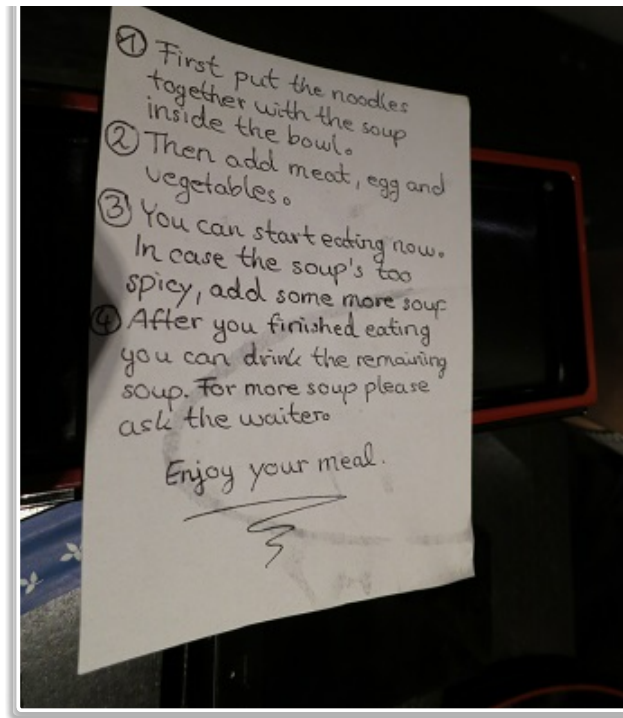 ① First put the noodles
together with the soup
inside the bowl。
② Then add meat, egg and
vegetables。
③ You can start eating now。
In case the soup's too
spicy, add some more soup
④ After you finished eating
you can drink the remaining
soup. For more soup please
ask the waiter。
Enjoy your meal.